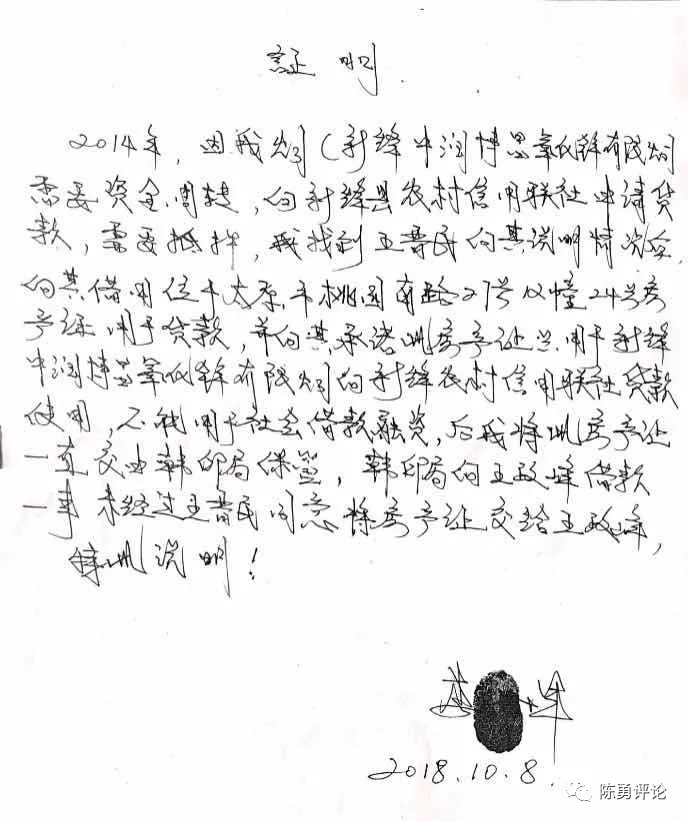 証明
2014年,因我公司(新绛中润博思氧化锌有限公司
需要资金周转,向新绛县农村信用联社申请贷
款,需要抵押,我找到王晋民向其说明情况后,
向其借用位于太原市桃园南路27号 幢24号房
产证用于贷款,并向其承诺此房产证只用于新绛
中润博思氧化锌有限公司向新绛农村信用联社贷款
使用,不能用于社会借款融资,后我将此房产证
一直交由韩印局保管,韩印局向王政峰借款
一事未经过王晋民同意将房产证交给王政峰,
特此说明!
2018.10.8.
陈勇评论